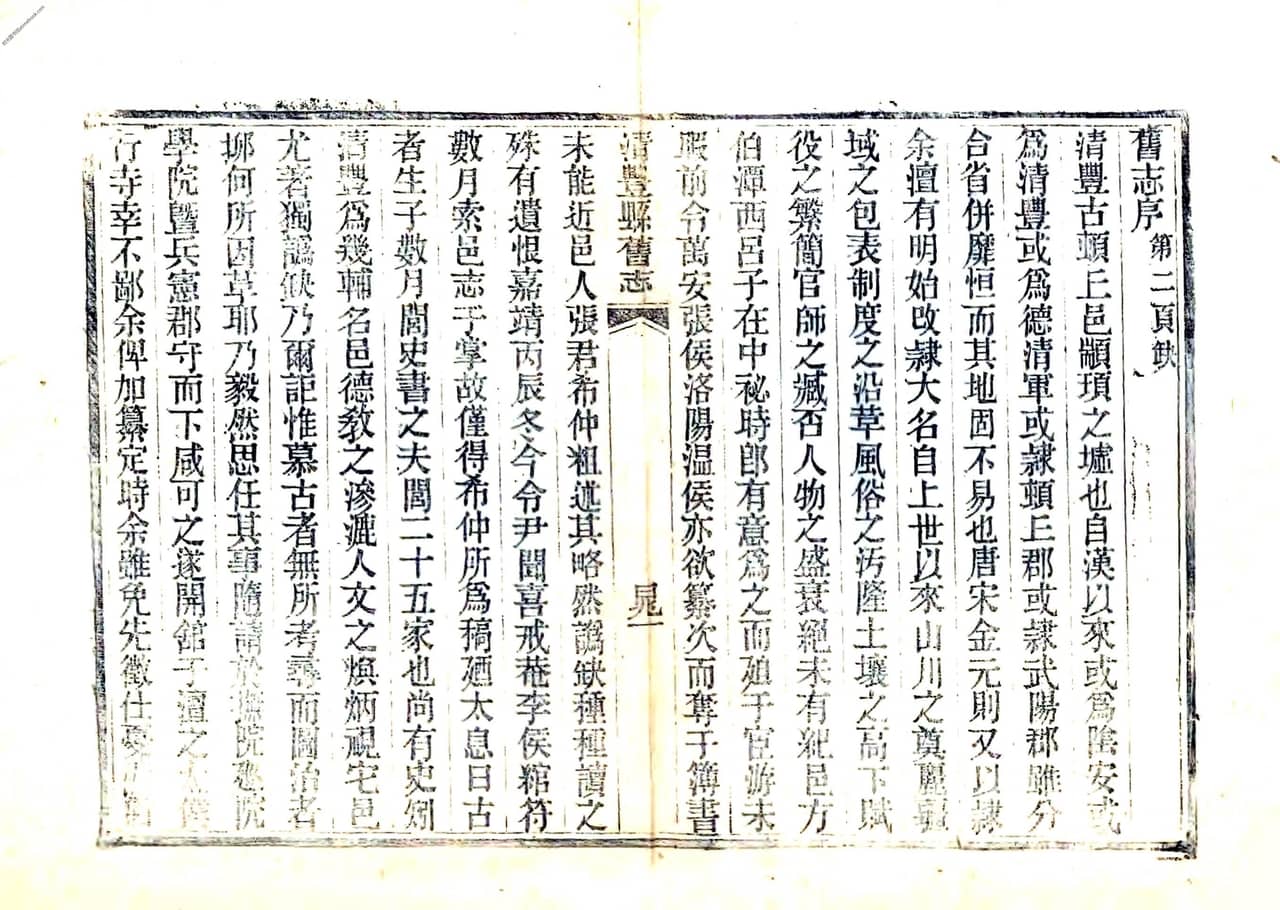 舊志序 第二頁缺
清豐古頓丘邑顓頊之墟也自漢以來或爲陰安或
爲清豐或爲德清軍或隷頓丘郡或隷武陽郡雖分
合省併靡恒而其地固不易也唐宋金元則又以隷
余澶有明始改隷大名自上世以來山川之奠麗疆
域之包表制度之沿革風俗之汚隆土壤之高下賦
役之繁簡官師之臧否人物之盛衰絕未有紀邑方
伯潭西呂子在中秘時卽有意爲之而廹于宦游未
暇前令萬安張侯洛陽温侯亦欲纂次而奪于簿書
清豐縣舊志
晁一
未能近邑人張君希仲粗述其略然譌缺種種讀之
殊有遺恨嘉靖丙辰冬今令尹聞喜戒菴李侯綰符
數月索邑志于掌故僅得希仲所爲稿廼太息曰古
者生子數月閭史書之夫閭二十五家也尚有史矧
清豐爲幾輔名邑德敎之滲漉人文之煥炳視宅邑
尤著獨譌缺乃爾詎惟慕古者無所考尋而圖治者
抑何所因革耶乃毅然思任其事隨請於撫院廵院
學院曁兵憲郡守而下咸可之遂開舘于澶之
行寺幸不鄙余俾加纂定時余雖免先徵仕憂